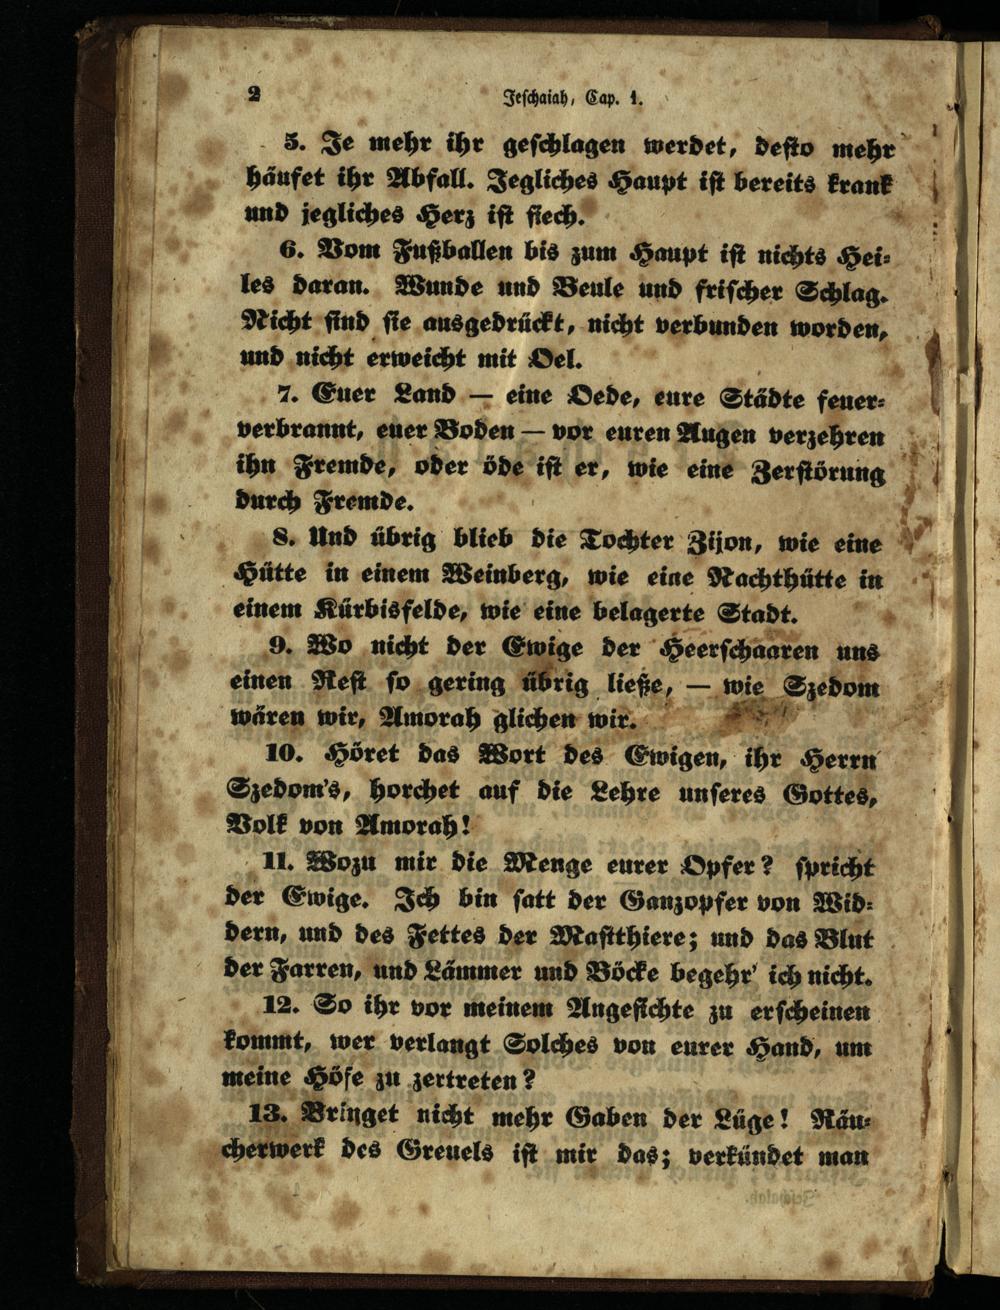 2
Jeschaiah, Cap. 1.
5. Je mehr ihr geschlagen werdet, desto mehr
häufet ihr Abfall. Jegliches Haupt ist bereits krank
und jegliches Herz ist siech.
6. Vom Fußballen bis zum Haupt ist nichts Hei-
les daran. Wunde und Beule und frischer Schlag.
Nicht sind sie ausgedrückt, nicht verbunden worden,
und nicht erweicht mit Oel.
7. Euer Land — eine Oede, eure Städte feuer-
verbrannt, euer Boden — vor euren Augen verzehren
ihn Fremde, oder öde ist er, wie eine Zerstörung
durch Fremde.
8. Und übrig blieb die Tochter Zijon, wie eine
Hütte in einem Weinberg, wie eine Nachthütte in
einem Kürbisfelde, wie eine belagerte Stadt.
9. Wo nicht der Ewige der Heerschaaren uns
einen Rest so gering übrig ließe, — wie Szedom
wären wir, Amorah glichen wir.
10. Höret das Wort des Ewigen, ihr Herrn
Szedom's, horchet auf die Lehre unseres Gottes,
Volk von Amorah!
11. Wozu mir die Menge eurer Opfer? spricht
der Ewige. Ich bin satt der Ganzopfer von Wid-
dern, und des Fettes der Mastthiere; und das Blut
der Farren, und Lämmer und Böcke begehr' ich nicht.
12. So ihr vor meinem Angesichte zu erscheinen
kommt, wer verlangt Solches von eurer Hand, um
meine Höfe zu zertreten?
13. Bringet nicht mehr Gaben der Lüge! Räu-
cherwerk des Greuels ist mir das; verkündet man